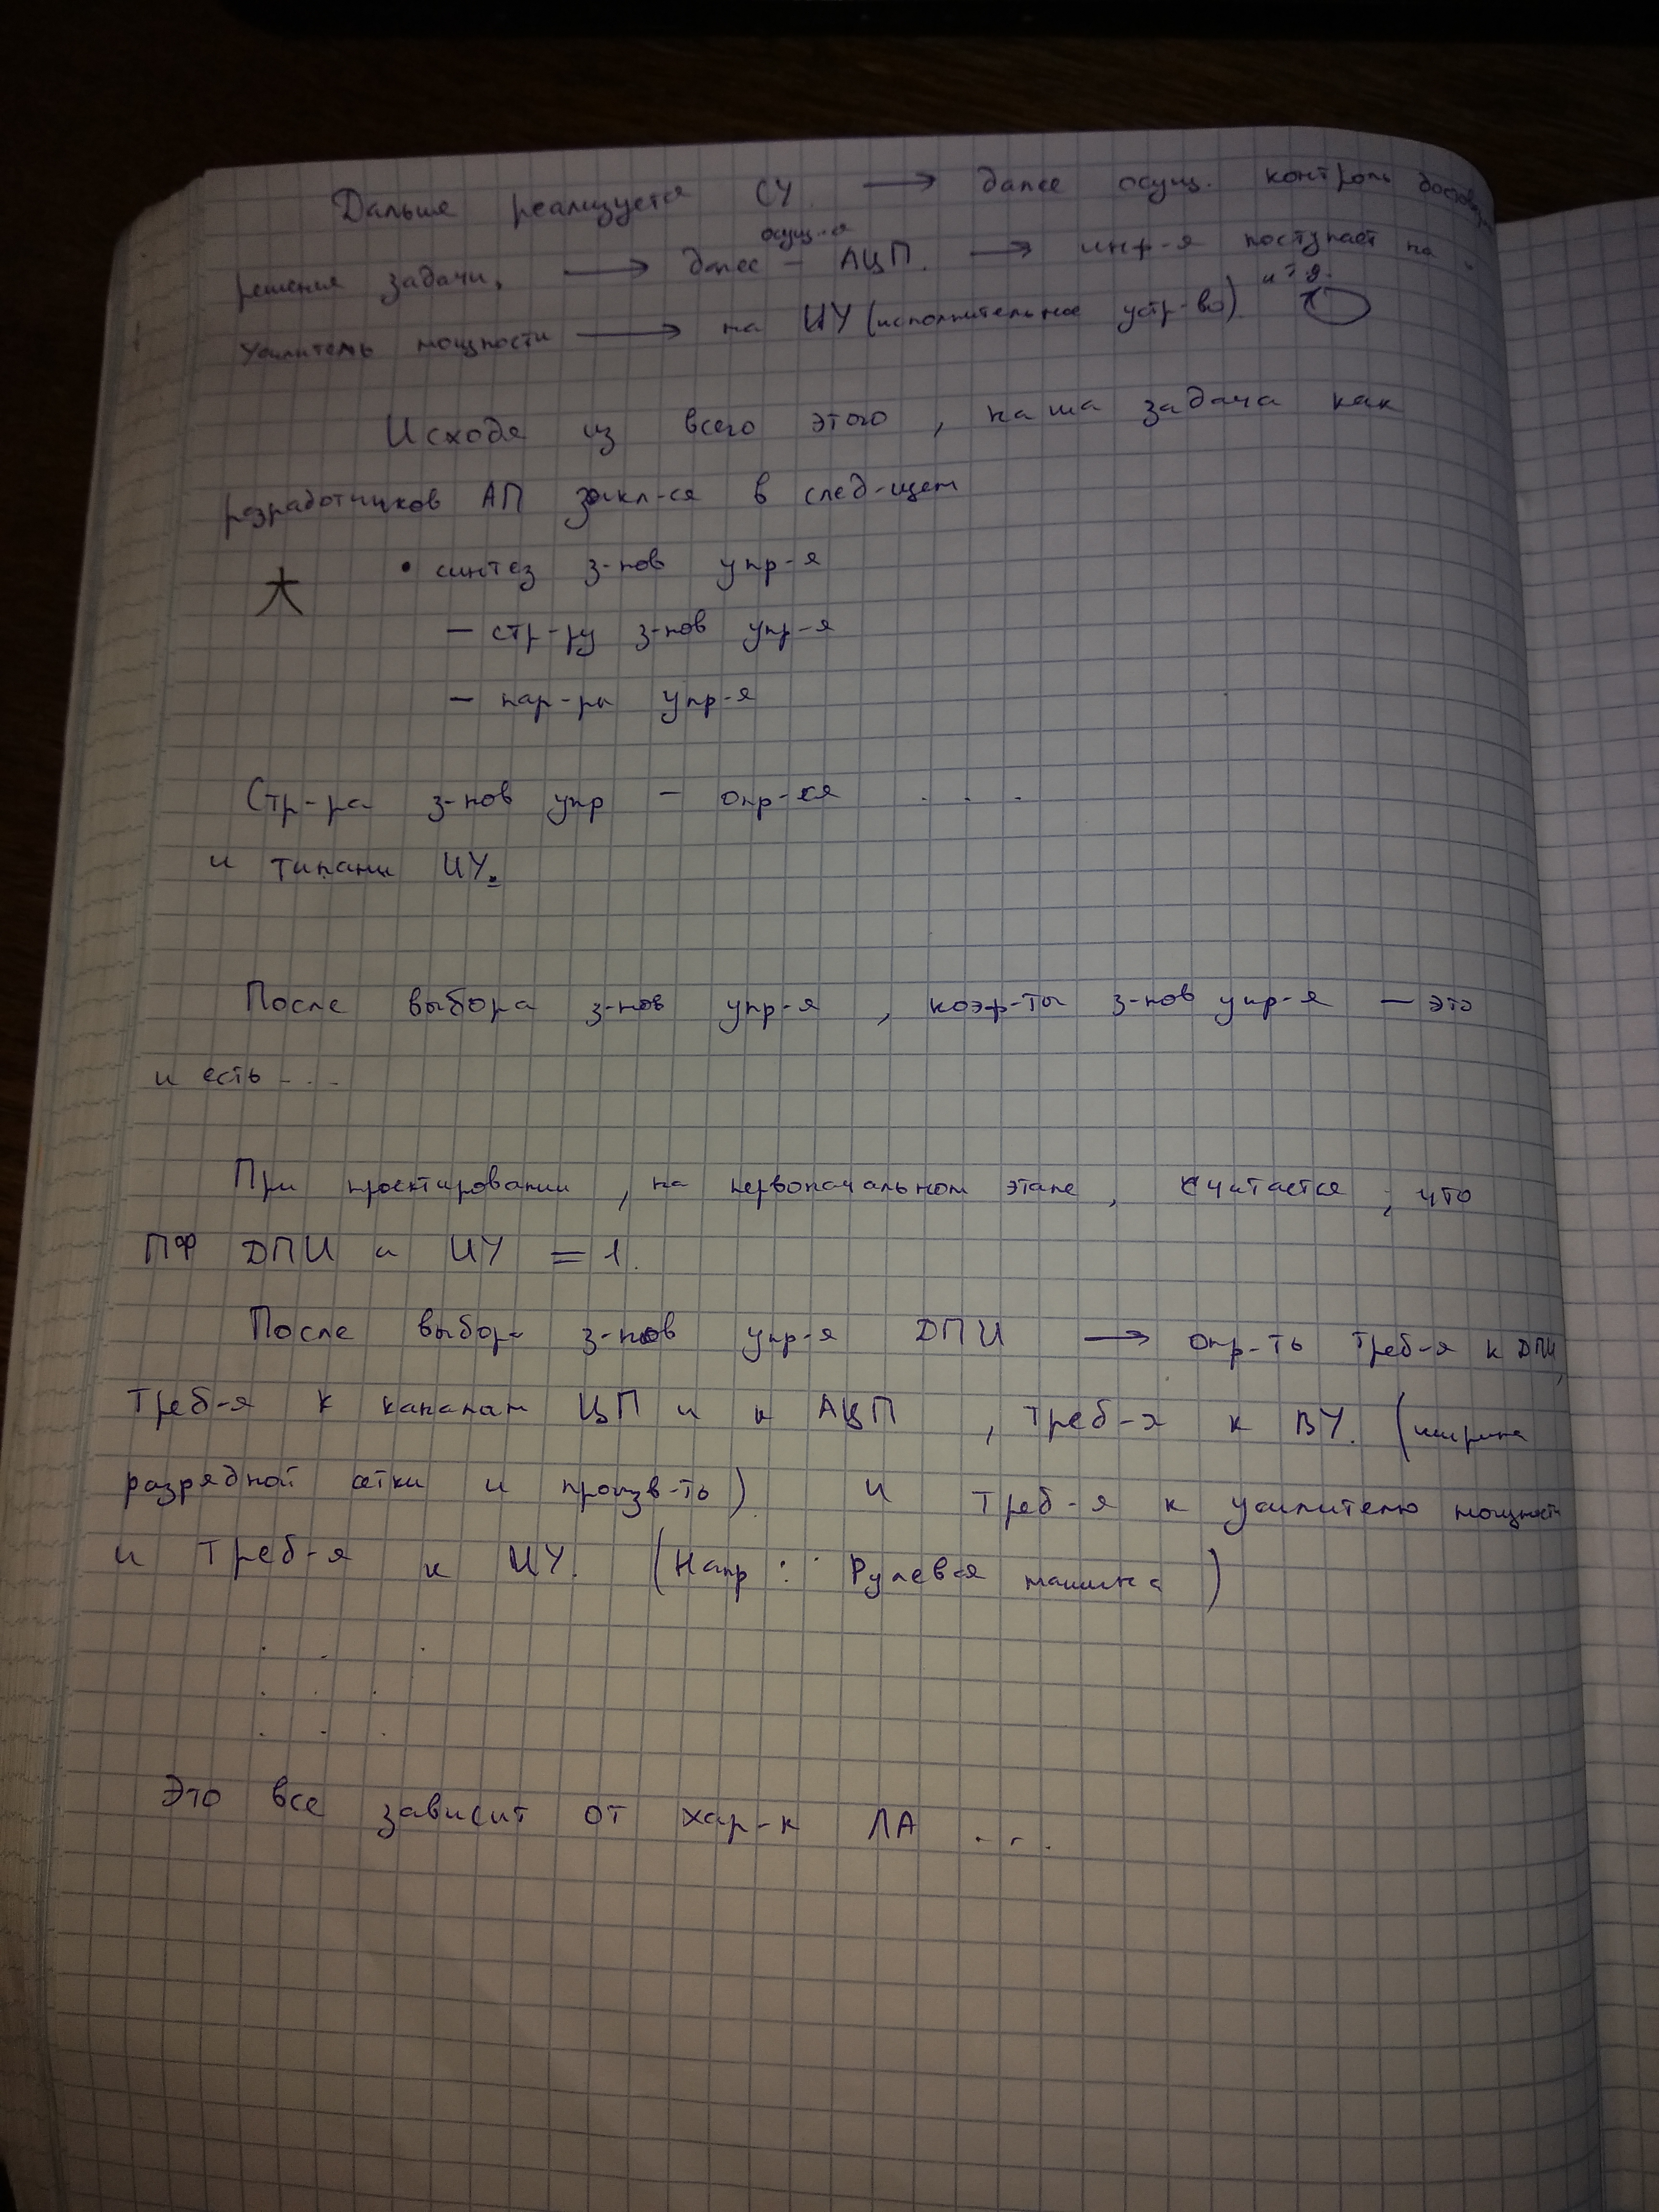 Дальше реализуется СУ. → далее осущ. контроль
осущ-я
решения задачи, → далее – АЦП. → инф-я поступает на
усилитель мощности → на ИУ (исполнительное устр-во) и т.д.
Исходя из всего этого, наша задача как
разработчиков АП закл-ся в след-щем
• синтез з-нов упр-я
– стр-ру з-нов упр-я
– пар-ры упр-я
Стр-ра з-нов упр – опр-ся . . .
и типами ИУ.
После выбора з-нов упр-я, коэф-ты з-нов упр-я – это
и есть ...
При проектировании, на первоначальном этапе, считается, что
ПФ ДПИ и ИУ = 1.
После выбора з-нов упр-я ДПИ → опр-ть треб-я к ДПИ,
треб-я к каналам ЦП и к АЦП, треб-я к ВУ. (ширина
разрядной сетки и произв-ть) и треб-я к усилителю мощности
и треб-я к ИУ. (Напр: Рулевая машинка)
. . .
. . .
. . .
Это все зависит от хар-к ЛА ...